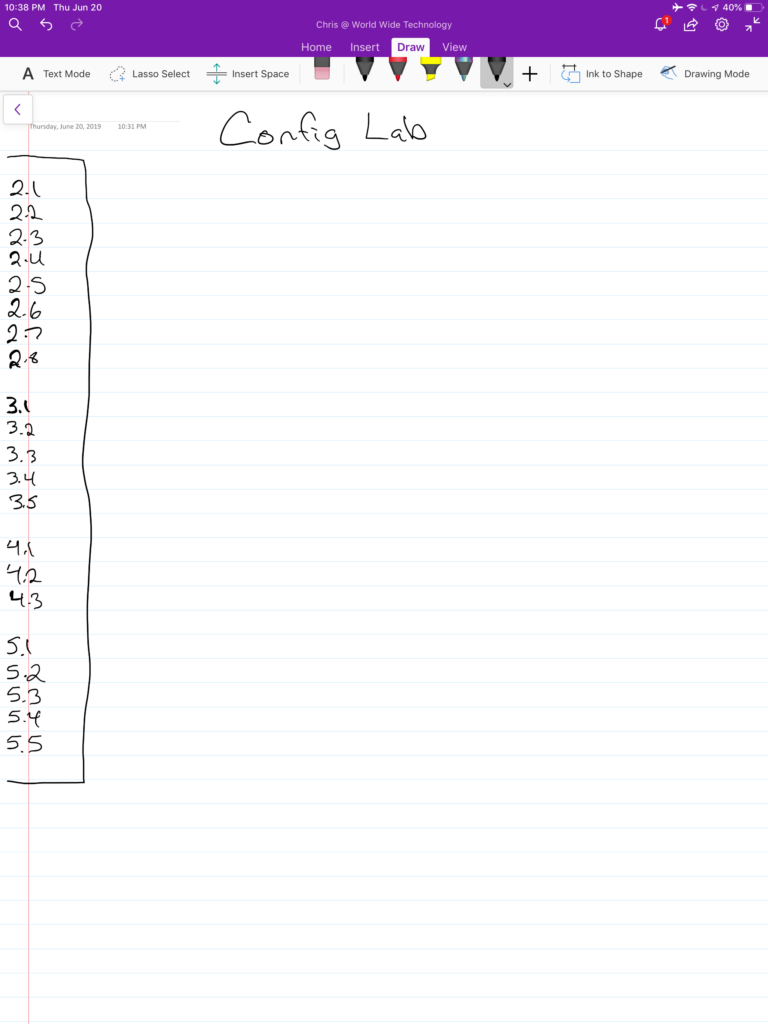 10:38 PM Thu Jun 20
40%
Chris @ World Wide Technology
1
Home Insert Draw View
A Text Mode Lasso Select Insert Space Ink to Shape Drawing Mode
Thursday, June 20, 2019 10:31 PM
Config Lab
2.1
2.2
2.3
2.4
2.5
2.6
2.7
2.8
3.1
3.2
3.3
3.4
3.5
4.1
4.2
4.3
5.1
5.2
5.3
5.4
5.5